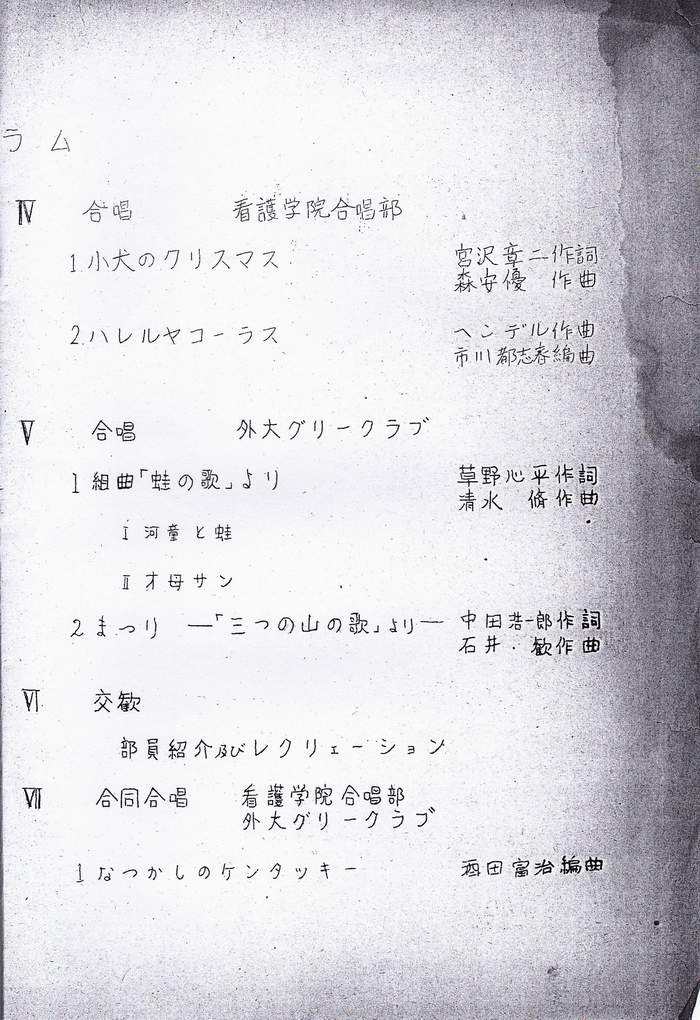 ラム
Ⅳ 合唱 看護学院合唱部
1.小犬のクリスマス 宮沢章二作詞
森安優 作曲
2.ハレルヤコーラス ヘンデル作曲
市川都志春編曲
Ⅴ 合唱 外大グリークラブ
1組曲「蛙の歌」より 草野心平作詞
清水 脩作曲
Ⅰ 河童と蛙
Ⅱ オ母サン
2まつり ―「三つの山の歌」より― 中田浩一郎作詞
石井・歓作曲
Ⅵ 交歓
部員紹介及びレクリェーション
Ⅶ 合同合唱 看護学院合唱部
外大グリークラブ
1なつかしのケンタッキー 酒田富治編曲